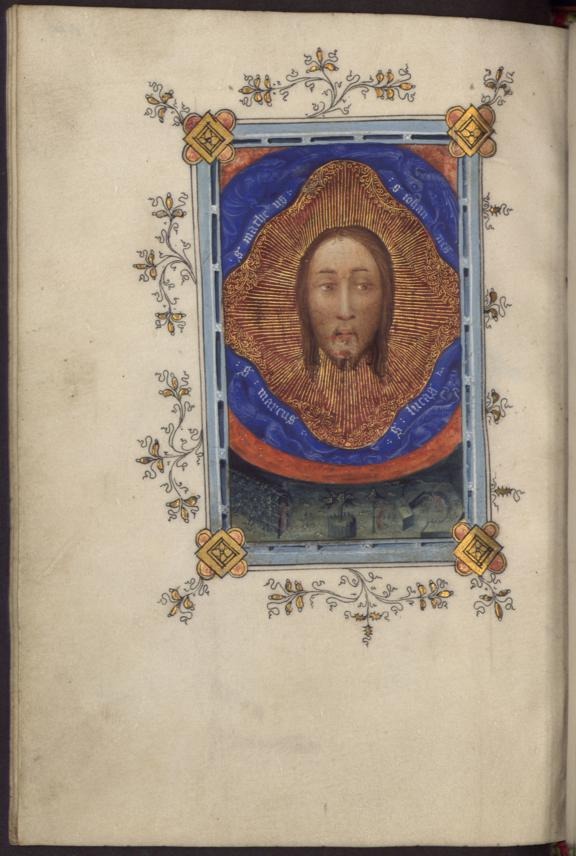 · s · matheus ·
· s · iohannes
· s · marcus
· s · lucas ·